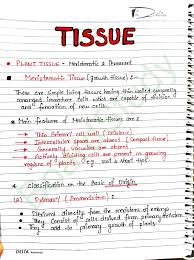 Date
TISSUE
PLANT TISSUE - Meristematic & Permanent
Meristematic Tissue (growth tissue) :-
These are simple living tissues having thin walled compactly
arranged immature cells which are capable of division &
and formation of new cells.
Main features of Meristematic tissues are :-
→ Thin primary cell wall (cellulosic)
→ Intercellular spaces are absent (compact tissue)
→ Generally vacuoles are absent
→ Actively dividing cells are present in growing
regions of plants e.g. root & shoot tips.
Classification on the Basis of Origin
(a) Primary / Promeristem :-
→ Derived directly from the meristems of embryo
→ They consist of cells derived from primary meristem
→ They add to primary growth of plants
DELTA